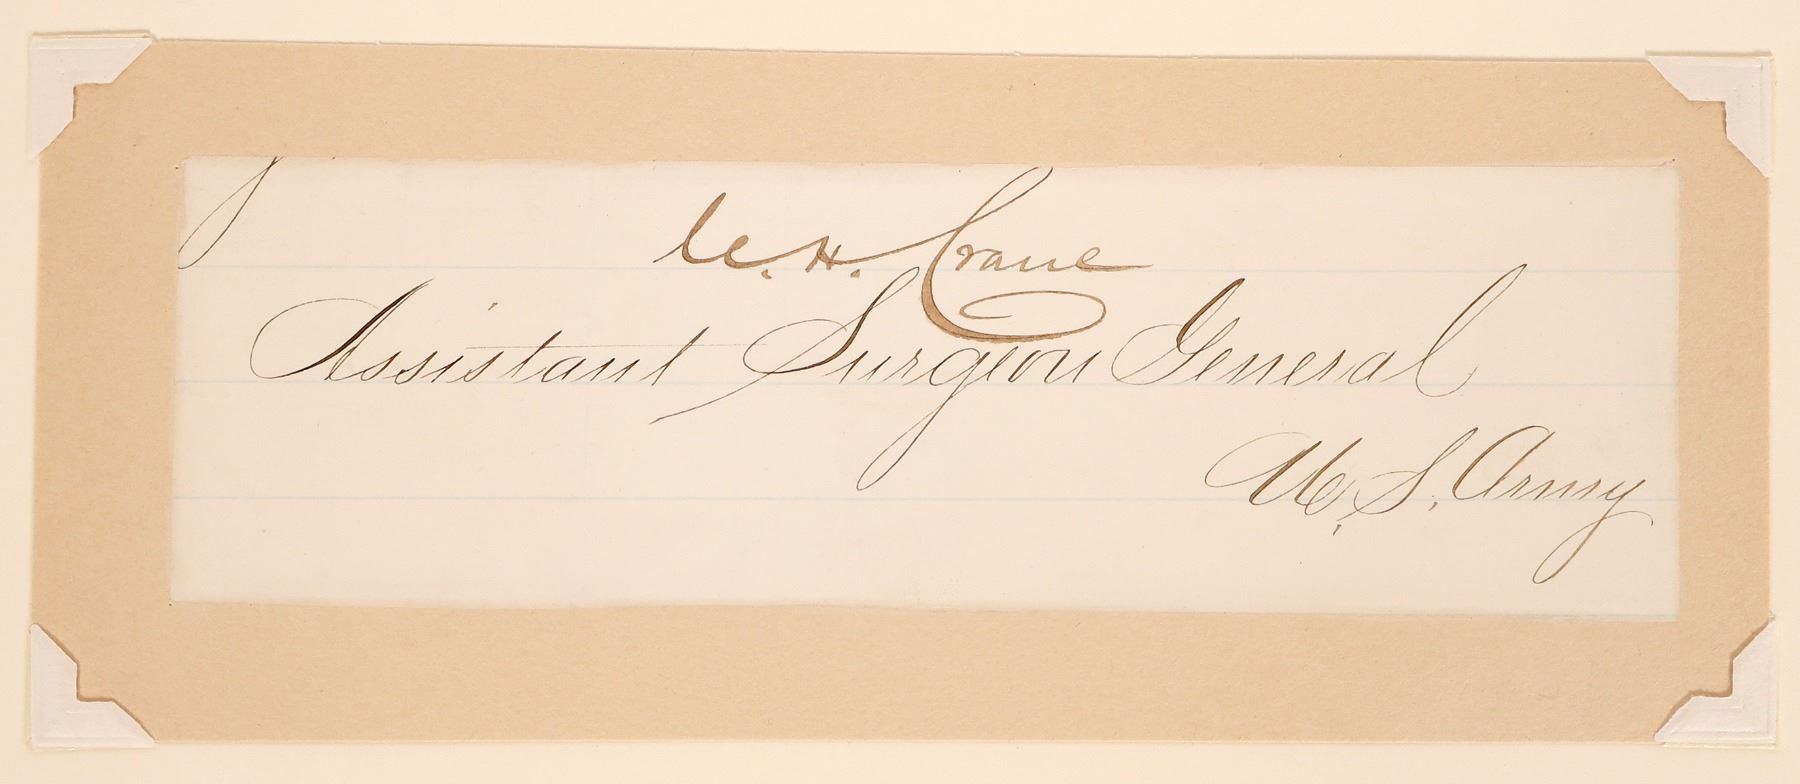 C. H. Crane
Assistant Surgeon General
U. S. Army